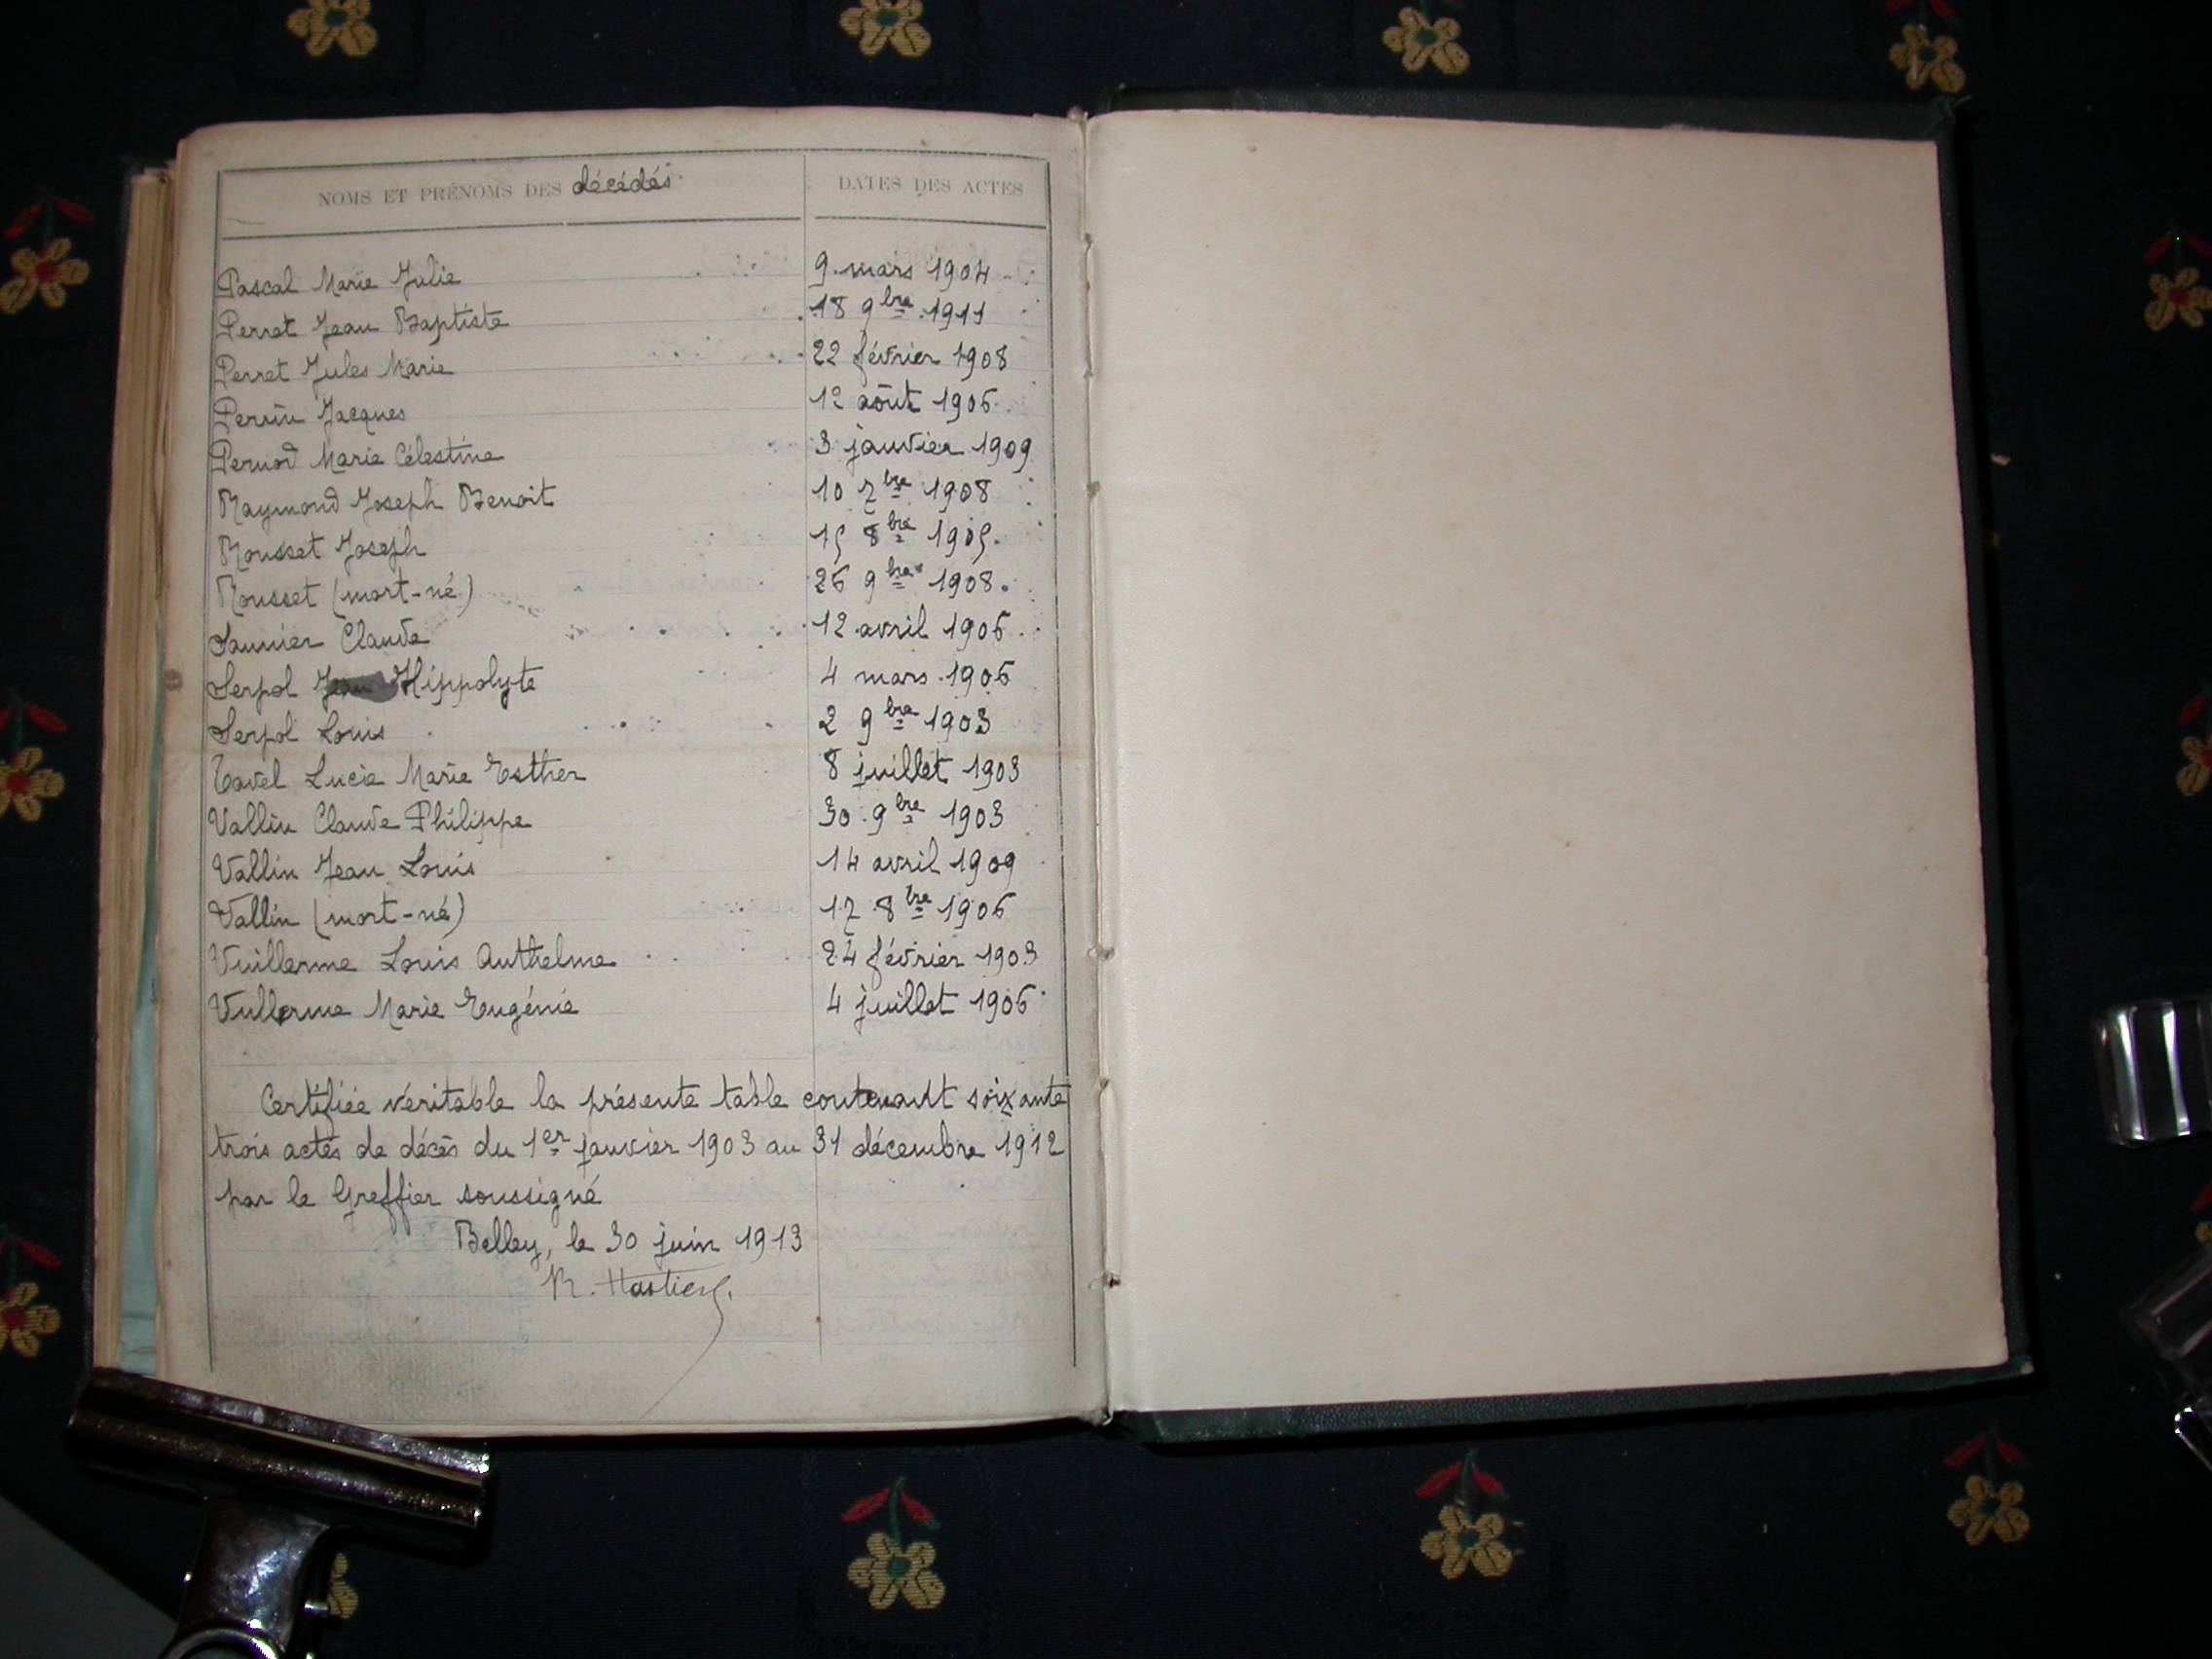 NOMS ET PRÉNOMS DES décédés DATES DES ACTES
Pascal Marie Julie 9 mars 1904
Perret Jean Baptiste 18 9bre 1911
Perret Jules Marie 22 février 1908
Perrin Jacques 12 août 1906
Pernod Marie Célestine 3 janvier 1909
Raymond Joseph Benoit 10 7bre 1908
Rousset Joseph 15 8bre 1905
Rousset (mort-né) 26 9bre 1908
Saunier Claude 12 avril 1906
Serpol Jean Hippolyte 4 mars 1906
Serpol Louis 2 9bre 1903
Tavel Lucie Marie Esther 8 juillet 1903
Vallin Claude Philippe 30 9bre 1903
Vallin Jean Louis 14 avril 1909
Vallin (mort-né) 17 8bre 1906
Vuillerme Louis Anthelme 24 février 1903
Vullerme Marie Eugénie 4 juillet 1906
Certifiée véritable la présente table contenant soixante
trois actes de décès du 1er janvier 1903 au 31 décembre 1912
par le Greffier soussigné
Belley, le 30 juin 1913
R. Hastier